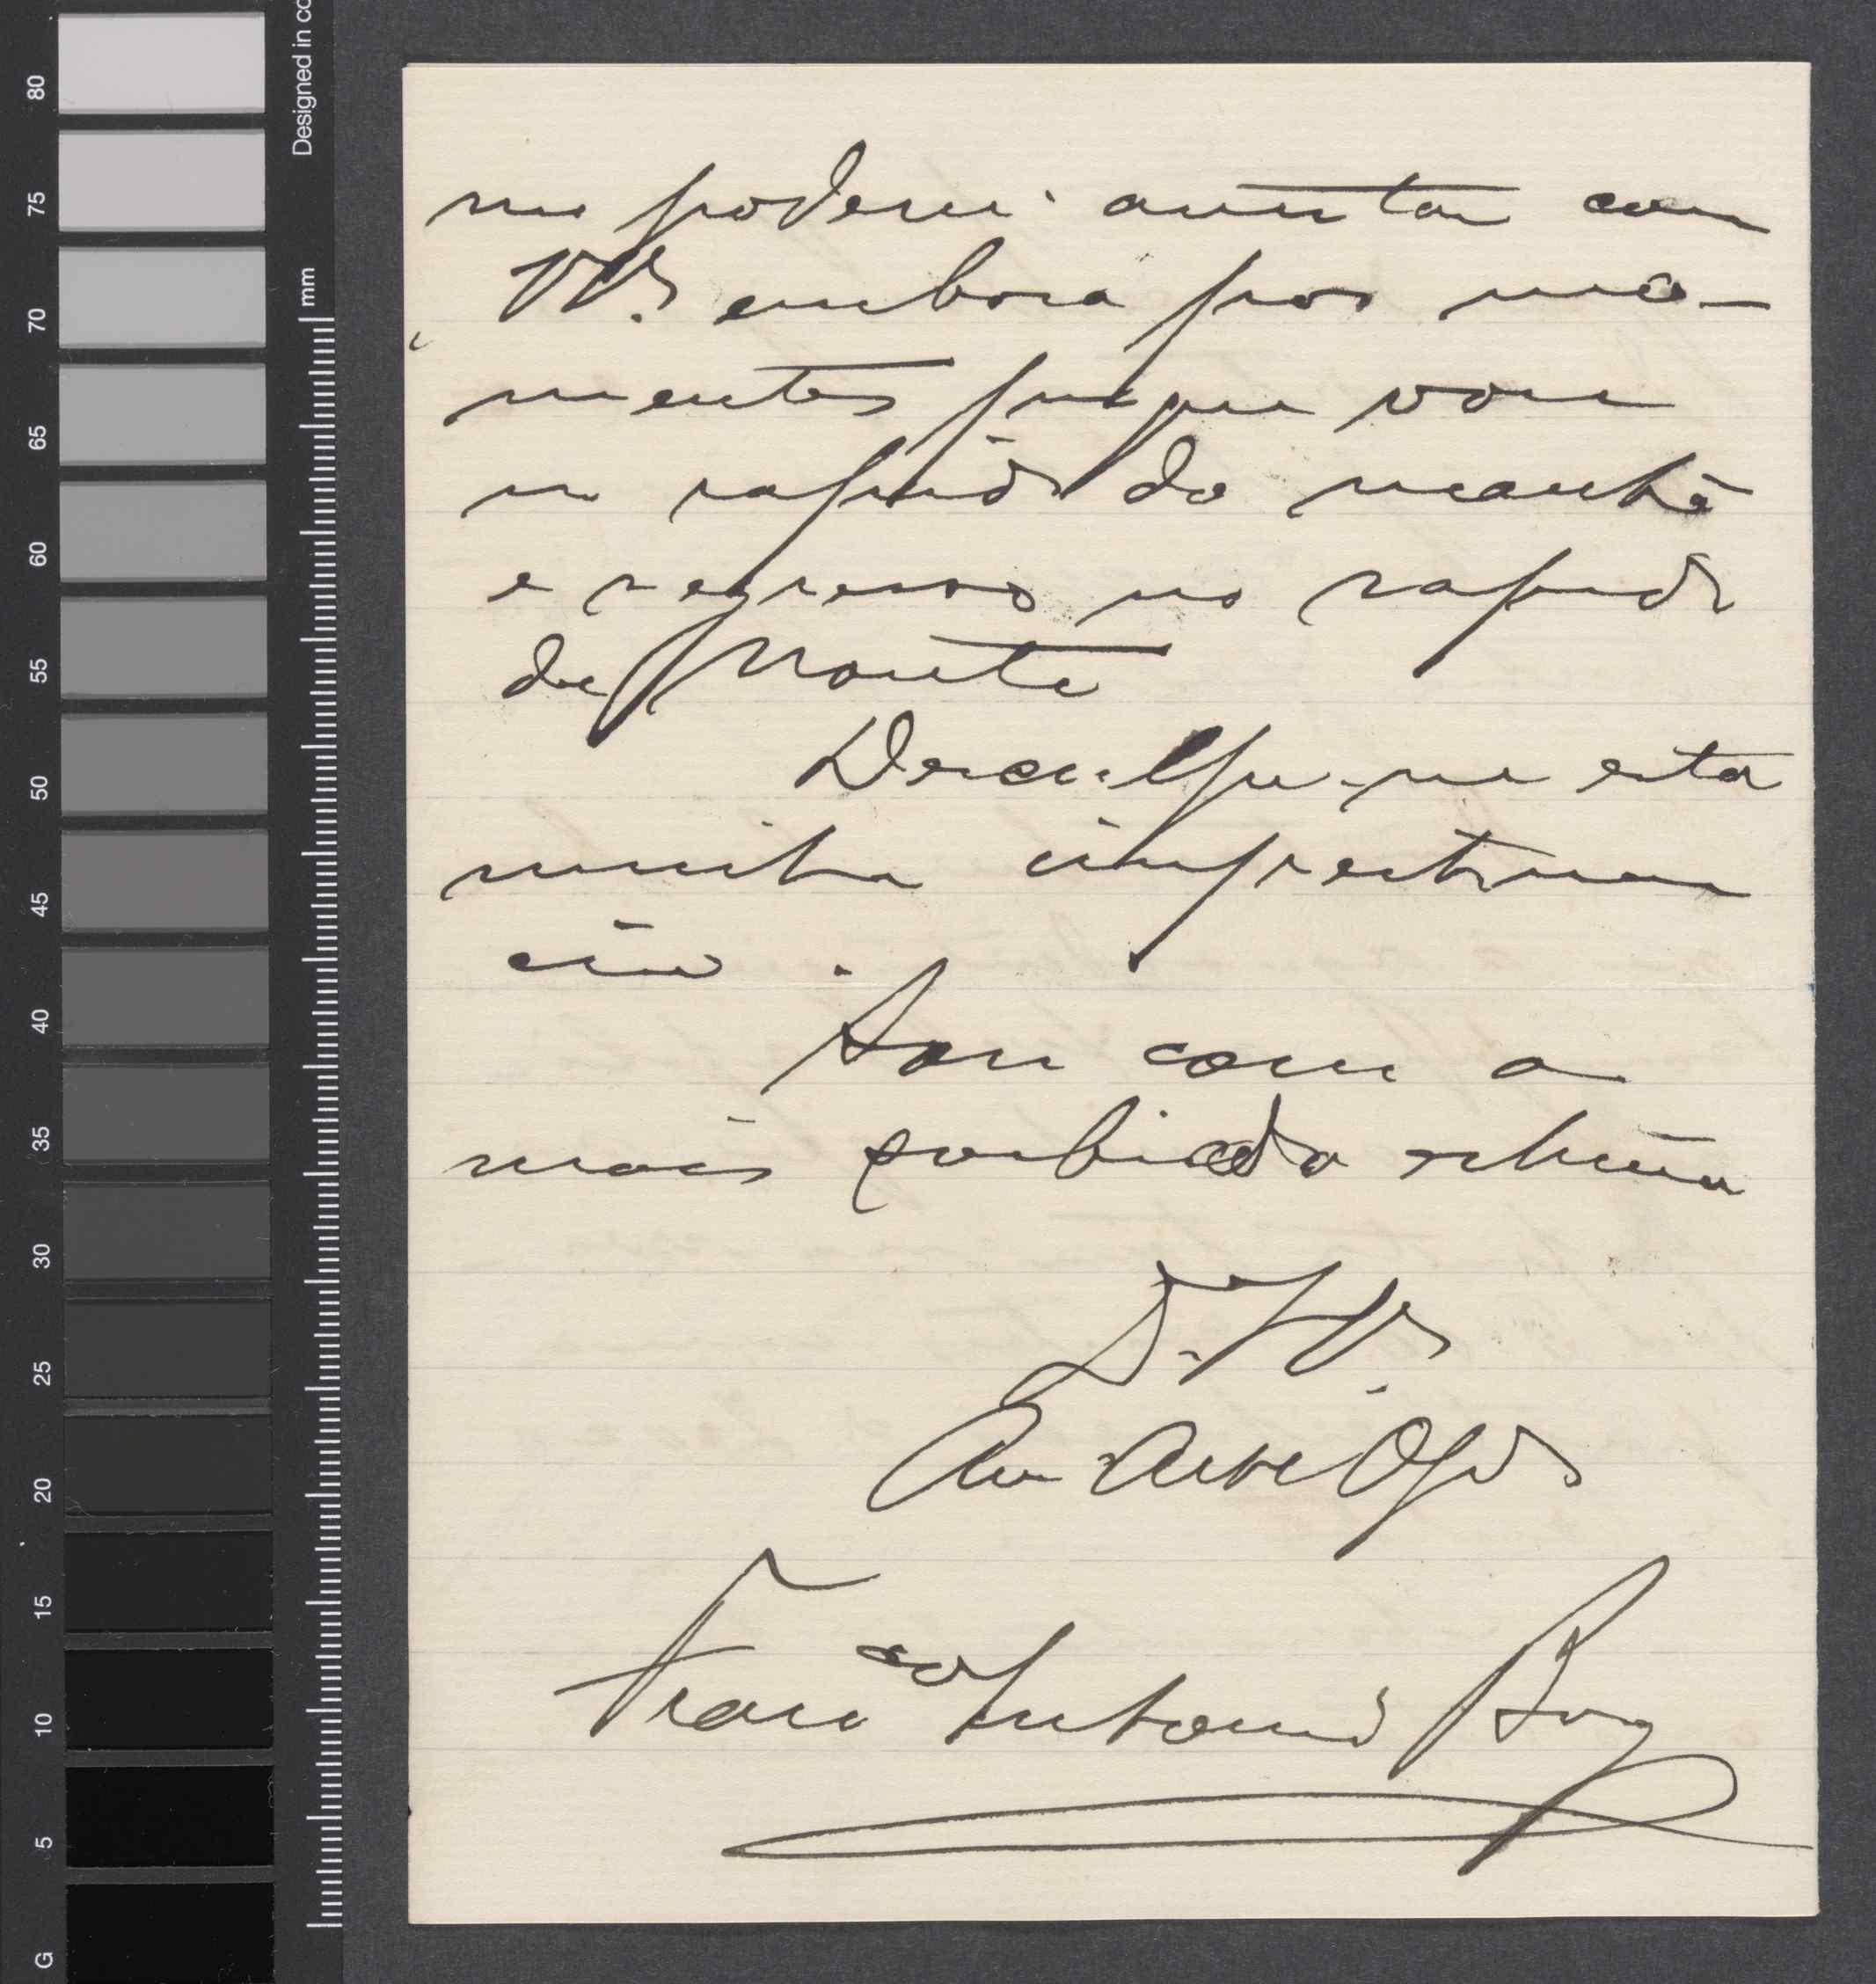 80
75
70
65
60
55
50
45
40
35
30
25
20
15
10
5
G
mm
Designed in co
me poderei avistar com
V. embora por mo-
mentos porque vou
no rapido da manhã
e regresso no rapido
da noute
Desculpe-me esta
minha impertinen
cia.
Sou com a
mais subida estima
De V.
Franco Antonio